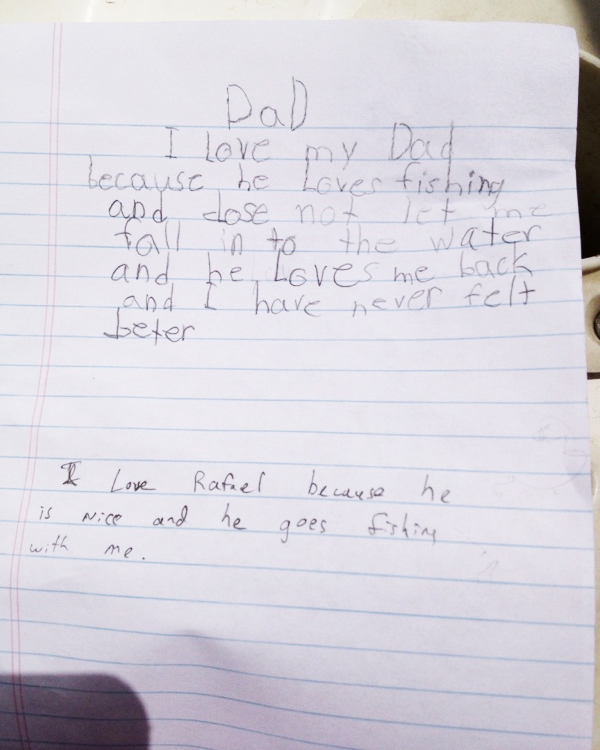 DaD
I Love my Dad
because he Loves fishing
and dose not let me
fall in to the water
and he Loves me back
and I have never felt
beter
I Love Rafael because he
is Nice and he goes fishing
with me.